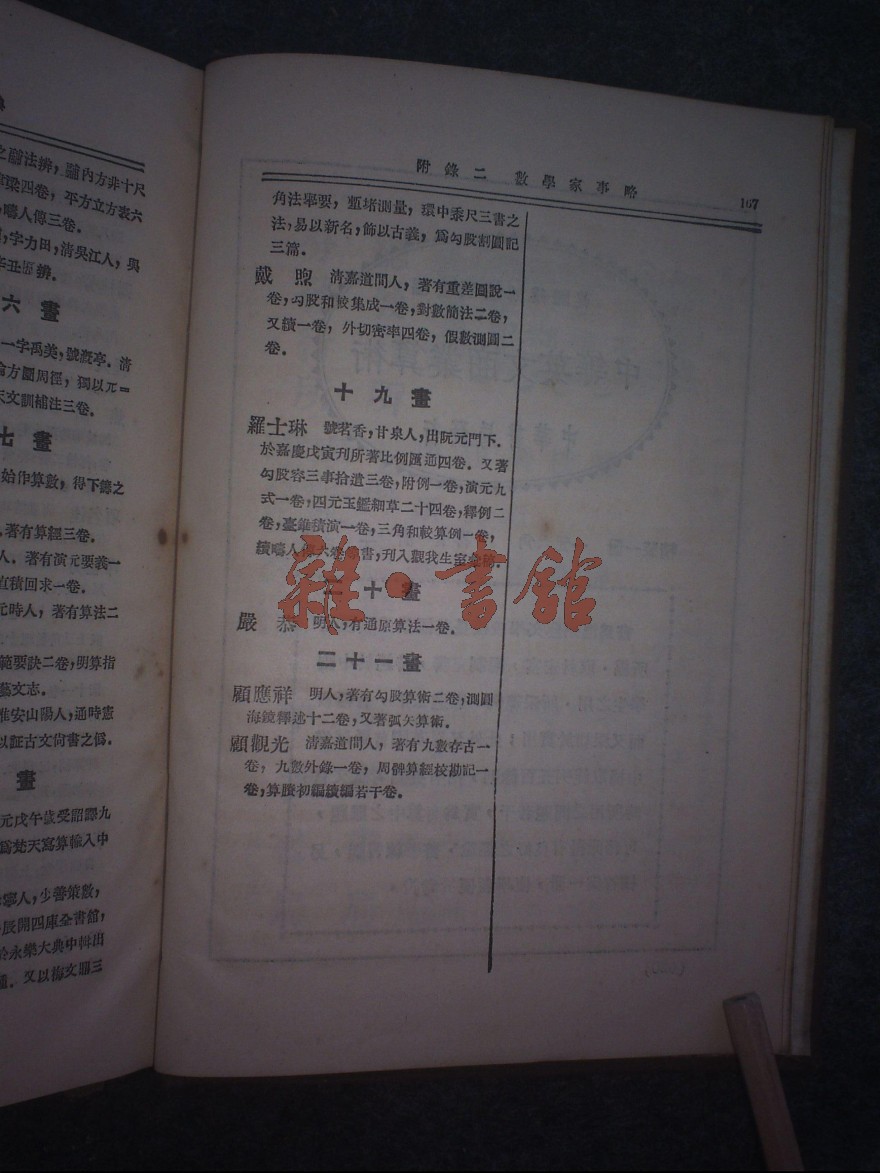 之鬴法辨，鬴內方非十尺
梁四卷，平方立方表六
疇人傳三卷．
字力田，清吳江人，與
六畫
一字禹美，號漑亭．清
方圜周徑，獨以元＝
天文訓補注三卷．
七畫
始作算數，得下篩之
著有算經三卷．
人．著有演元要義一
直積回求一卷．
元時人，著有算法二
範要訣二卷，明算指
藝文志．
淮安山陽人，通時憲
以証古文尚書之僞．
畫
元戊午歲受詔譯九
爲梵天寫算輸入中
寧人，少善策數，
辰開四庫全書館，
於永樂大典中輯出
又以梅文鼎三
附錄二 數學家事略
167
角法舉要，塹堵測量，環中黍尺三書之
法，易以新名，飾以古義，爲勾股割圜記
三篇．
戴煦 清嘉道間人，著有重差圖說一
卷，勾股和較集成一卷，對數簡法二卷，
又續一卷，外切密率四卷，假數測圓二
卷．
十九畫
羅士琳 號茗香，甘泉人，出阮元門下．
於嘉慶戊寅刊所著比例匯通四卷．又著
勾股容三事拾遺三卷，附例一卷，演元九
式一卷，四元玉鑑細草二十四卷，釋例二
卷，臺錐積演一卷，三角和較算例一卷，
續疇人傳六卷書，刊入觀我生室
二十畫
雜·書館
嚴恭 明人，有通原算法一卷．
二十一畫
顧應祥 明人，著有勾股算術二卷，測圓
海鏡釋述十二卷，又著弧矢算術．
顧觀光 清嘉道間人，著有九數存古一
卷，九數外錄一卷，周髀算經校勘記一
卷，算賸初編續編若干卷．